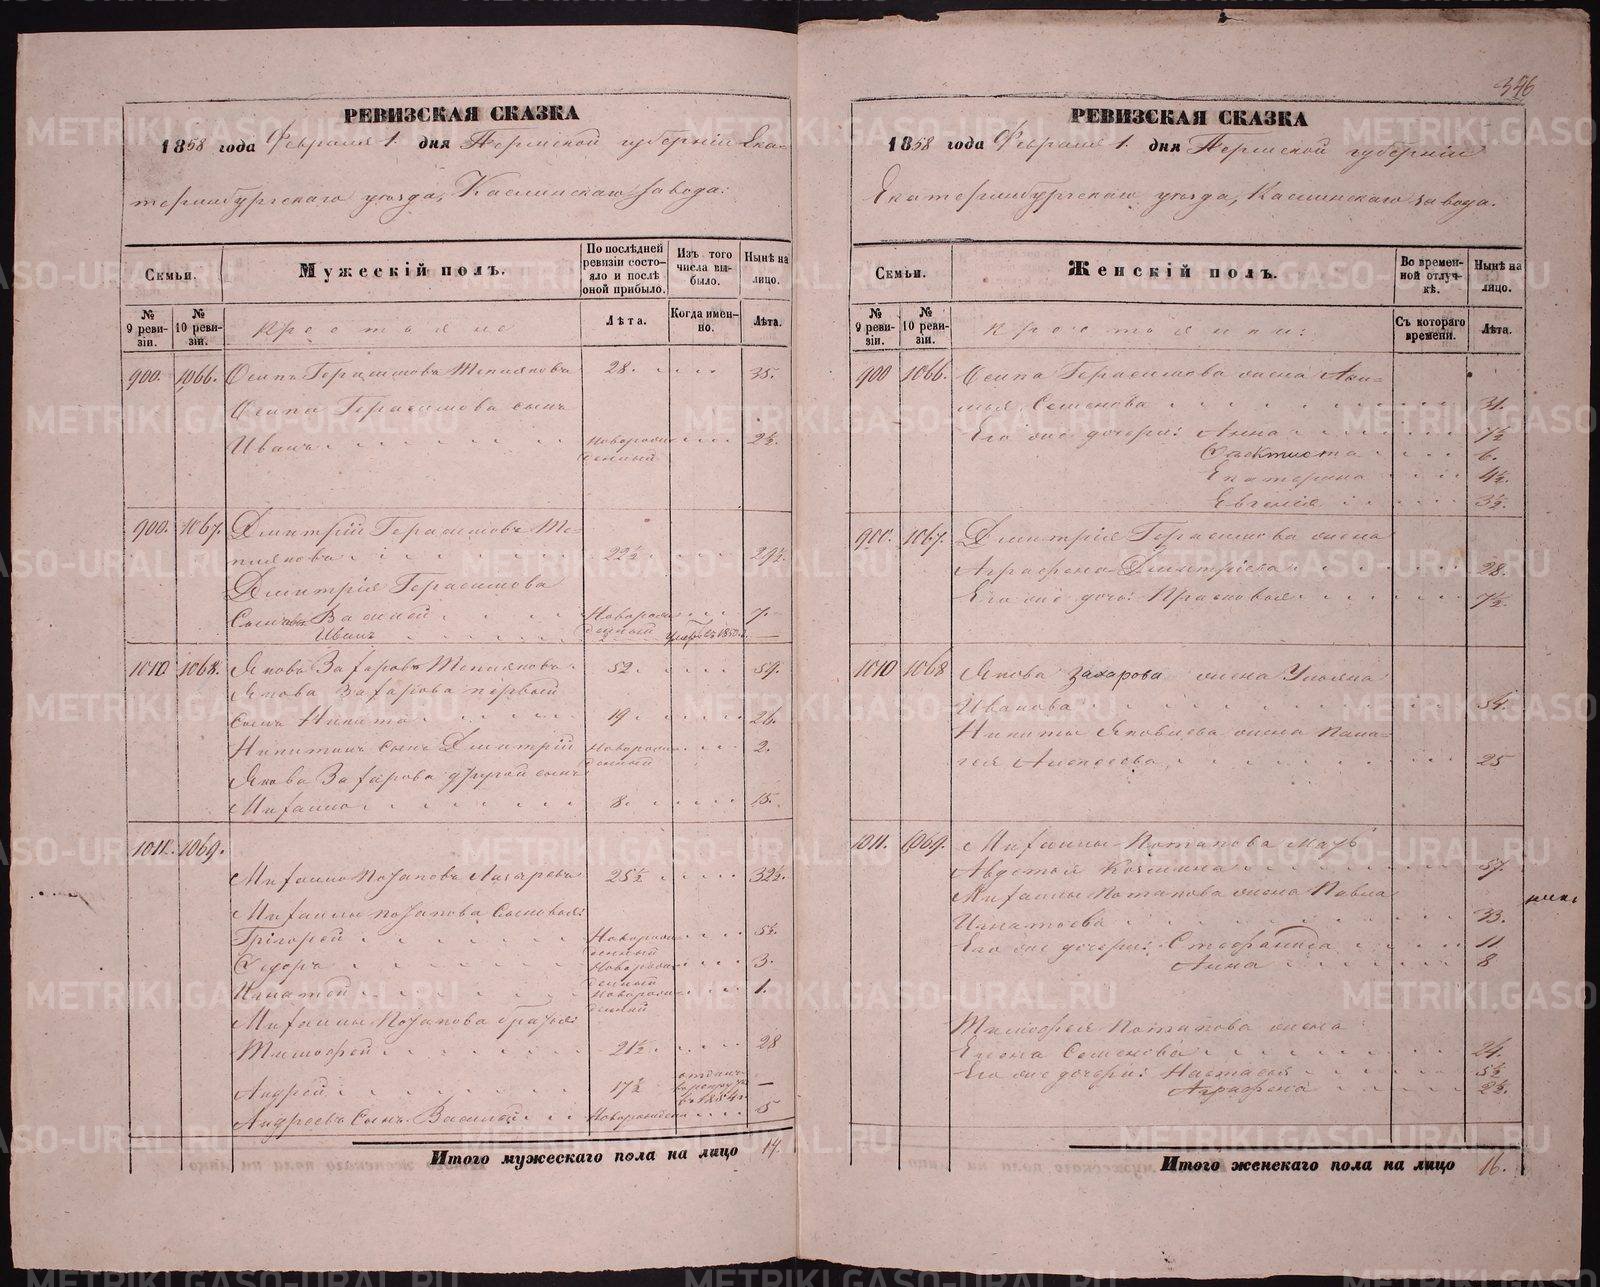 РЕВИЗСКАЯ СКАЗКА
1858 года Февраля 1. дня Пермской губерніи Ека-
теринбургскаго уѣзда, Каслинскаго завода:
Семьи.
Мужескій полъ.
По послѣдней ревизіи состо-яло и послѣ оной прибыло.
Изъ того числа вы-было.
Нынѣ на лицо.
№ 9 реви-зіи.
№ 10 реви-зіи.
Крестьяне
Лѣта.
Когда имен-но.
Лѣта.
900. 1066. Осипъ Герасимовъ 28. 35.
Осипа Герасимова сынъ
Иванъ Новорож-денный 2½.
900. 1067. Дмитрій Герасимовъ
22½ 29½.
Дмитрія Герасимова
Сыновья Василей Новорож- 7.
Иванъ денный —
1010 1068. Яковъ Захаровъ 52. 59.
Якова Захарова первый
сынъ Никита 19 26.
Никитинъ сынъ Дмитрій Новорож-денный 2.
Якова Захарова другой сынъ
Михаило 8. 15.
1011. 1069.
Михаило Потаповъ Лазаревъ 25½ 32½.
Михаилы Потапова Сыновья:
Григорей Новорож-денный 5½.
Федоръ Новорож-денный 3.
Игнатей Новорож-денный 1.
Михаилы Потапова братья:
Тимофей 21½ 28
Андрей 17½ —
Андреевъ Сынъ Василей Новорожден 5
Итого мужескаго пола на лицо 14.
356
РЕВИЗСКАЯ СКАЗКА
1858 года Февраля 1. дня Пермской губерніи
Екатеринбургскаго уѣзда, Каслинскаго завода.
Семьи.
Женскій полъ.
Во времен-ной отлуч-кѣ.
Нынѣ на лицо.
№ 9 реви-зіи.
№ 10 реви-зіи.
Крестьянки:
Съ котораго времени.
Лѣта.
900 1066. Осипа Герасимова жена
Семенова 31.
Его же дочери: Анна 7½
Феоктиста 6.
Екатерина 4½.
Евгенія 3½.
900. 1067. Дмитрія Герасимова жена
Аграфена Дмитріева 28.
Его же дочь: Прасковья 7½.
1010 1068 Якова Захарова жена Ульяна
Иванова 54.
Никиты Яковлева жена Пала-
гея Алексеева 25
1011. 1069. Михаилы Потапова мать
Авдотья Козмина 57.
Михаилы Потапова жена Павла
Игнатьева 33.
Его же дочери: Стефанида 11
Анна 8
Тимофея Потапова жена
Елена Семенова 24.
Его же дочери: Настасья 5½
Аграфена 2½.
Итого женскаго пола на лицо 16.
METRIKI.GASO-URAL.RU